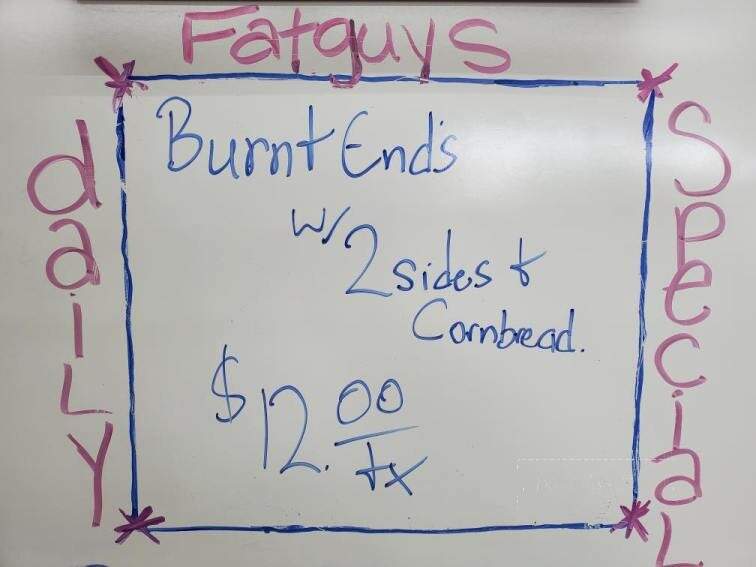 Fatguys
daiLY
SpeciaL
Burnt End's
w/ 2 sides &
Cornbread.
$12.00
tx